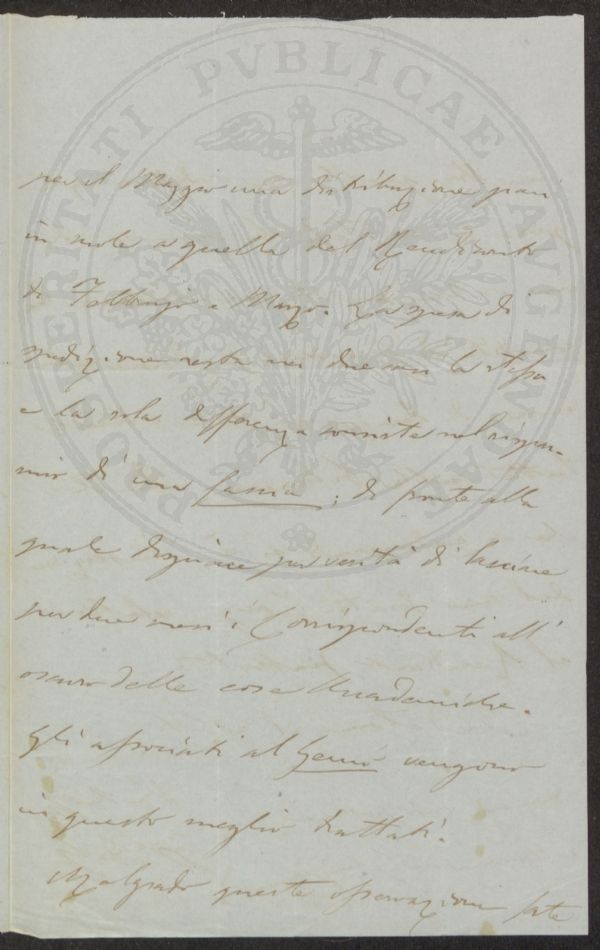 PROSPERITATI PVBLICAE AVGENDAE
per il Maggio una distribuzione pari
in mole a quella del Rendiconto
di Febbrajo e Marzo. La spesa di
spedizione resta nei due casi la stessa
e la sola differenza consiste nel rispar-
mio di una fascia; di fronte alla
quale dispiace per verità di lasciare
per due mesi i Corrispondenti all'
oscuro delle cose Accademiche.
Gli associati al vengono
in questo meglio trattati.
Malgrado queste osservazioni fate